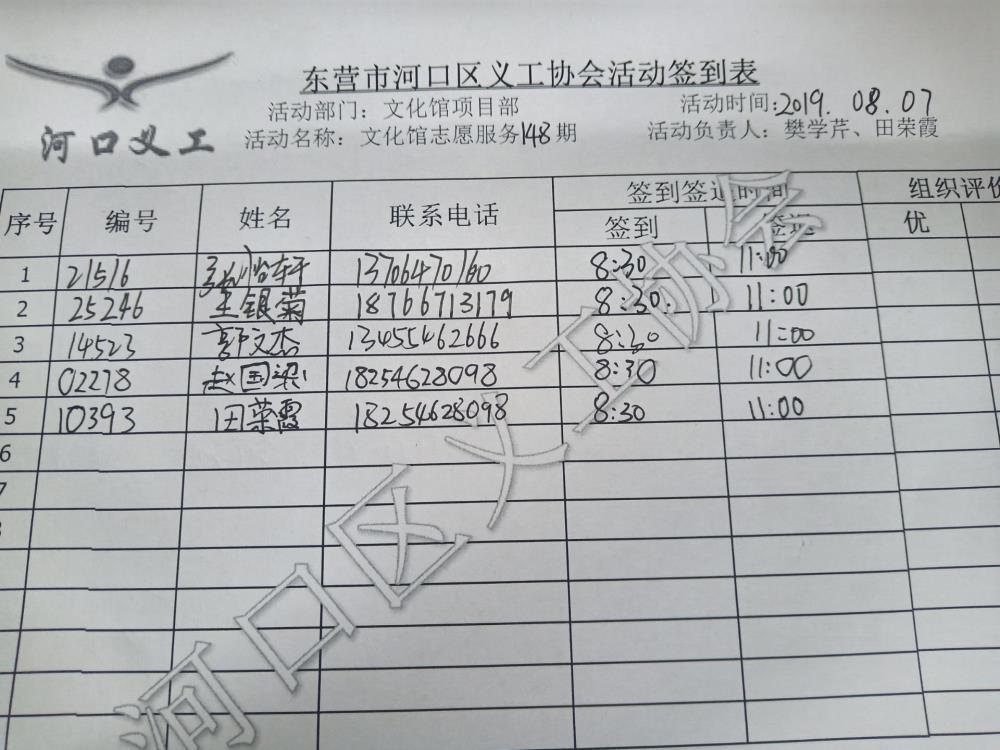 东营市河口区义工协会活动签到表
活动部门：文化馆项目部 活动时间:2019.08.07
活动名称：文化馆志愿服务148期 活动负责人：樊学芹、田荣霞
河口义工
序号 编号 姓名 联系电话 签到签退时间 组织评价
签到 签退 优
1 21516 13706470160 8:30 11:00
2 25246 王银菊 18766713179 8:30 11:00
3 14523 郭文杰 13455462666 8:30 11:00
4 02278 赵国梁 18254628098 8:30 11:00
5 10393 田荣霞 18254628098 8:30 11:00
6
7
河口区义工协会